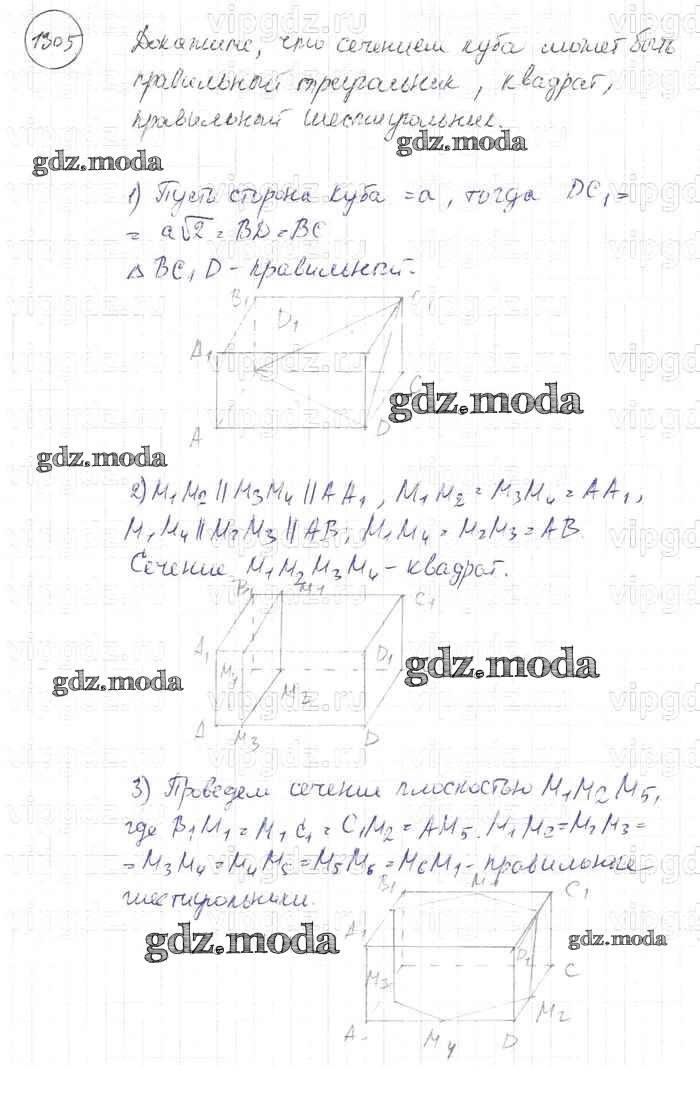 1305
Докажите, что сечением куба может быть
правильный треугольник, квадрат,
правильный шестиугольник.
gdz.moda
gdz.moda
1) Пусть сторона куба = a, тогда DC₁ =
= a√2 = BD = BC
△ BC₁D - правильный.
B₁ C₁
D₁
A₁
C
gdz.moda
A D
gdz.moda
2) M₁M₂ || M₃M₄ || AA₁, M₁M₂ = M₃M₄ = AA₁,
M₁M₄ || M₂M₃ || AB, M₁M₄ = M₂M₃ = AB.
Сечение M₁M₂M₃M₄ - квадрат.
B₁ M₁ C₁
A₁ D₁
M₄
gdz.moda
gdz.moda
M₂
A M₃ D
3) Проведем сечение плоскостью M₁M₂M₅,
где B₁M₁ = M₁C₁ = C₁M₂ = AM₅. M₁M₂ = M₂M₃ =
= M₃M₄ = M₄M₅ = M₅M₆ = M₆M₁ - правильные
шестиугольники.
B₁ C₁
A₁
gdz.moda
gdz.moda
D₁
C
M₂
A M₄ D
vipgdz.ru